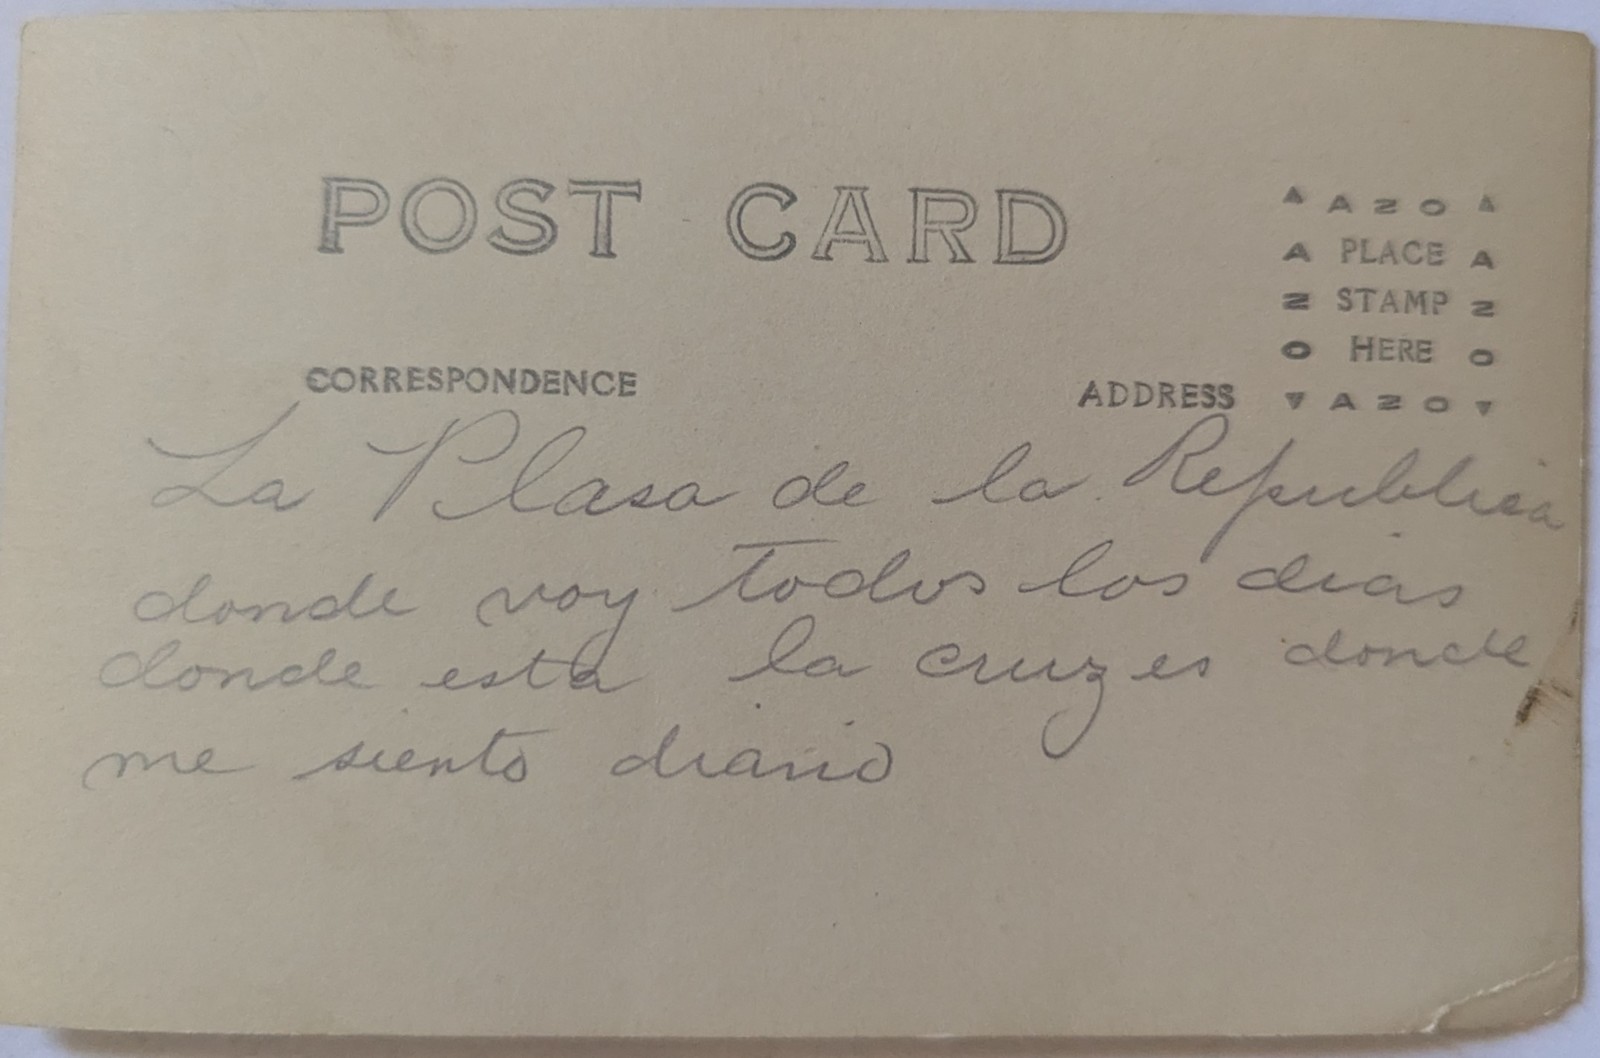 POST CARD
▲ A Z O ▲
A PLACE A
Z STAMP Z
O HERE O
▼ A Z O ▼
CORRESPONDENCE
ADDRESS
La Plasa de la Republica
donde voy todos los dias
donde esta la cruz es donde
me siento diario